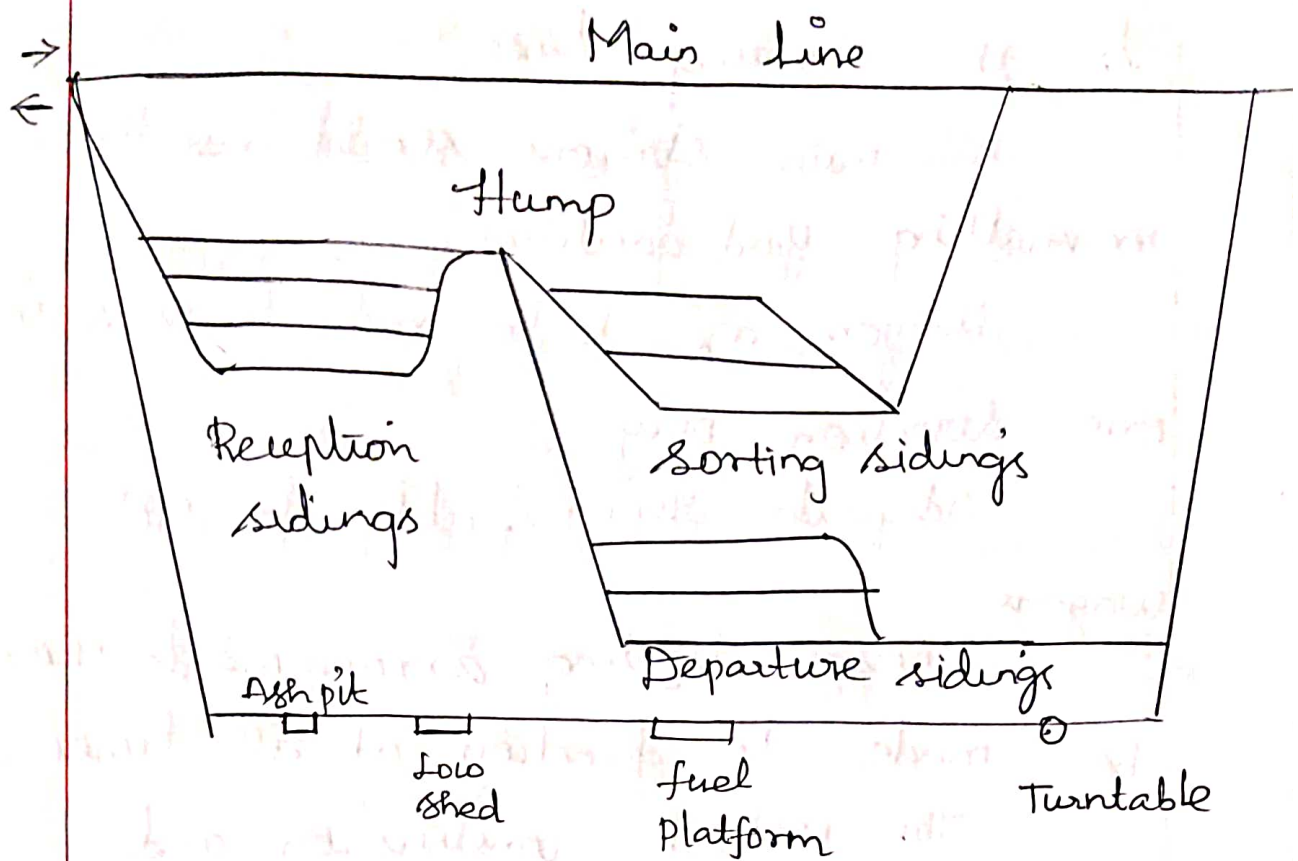 Main Line
Hump
Reception
sidings
Sorting sidings
Departure sidings
Ash pit
Loco
shed
fuel
Platform
Turntable